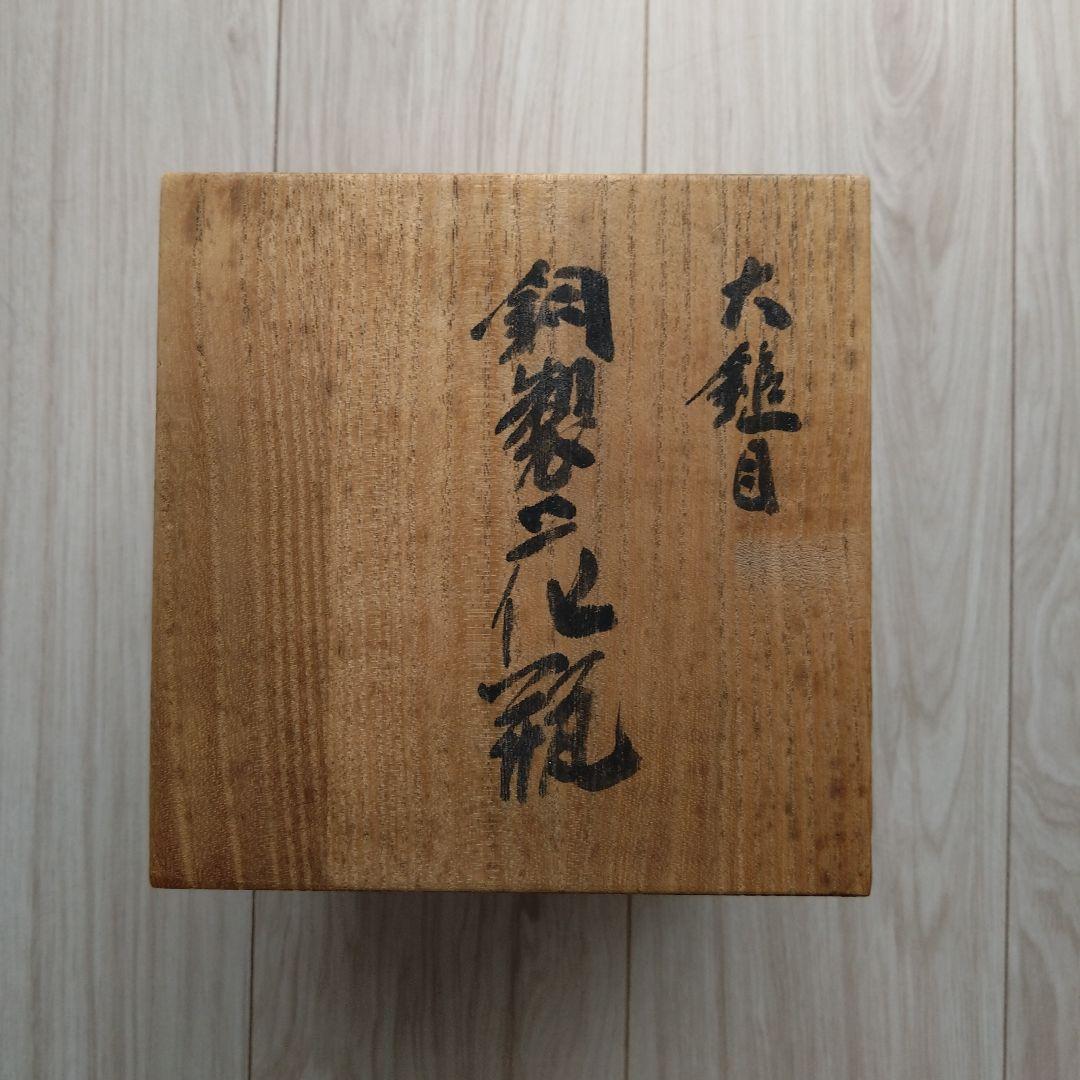 大鎚目
銅製花瓶